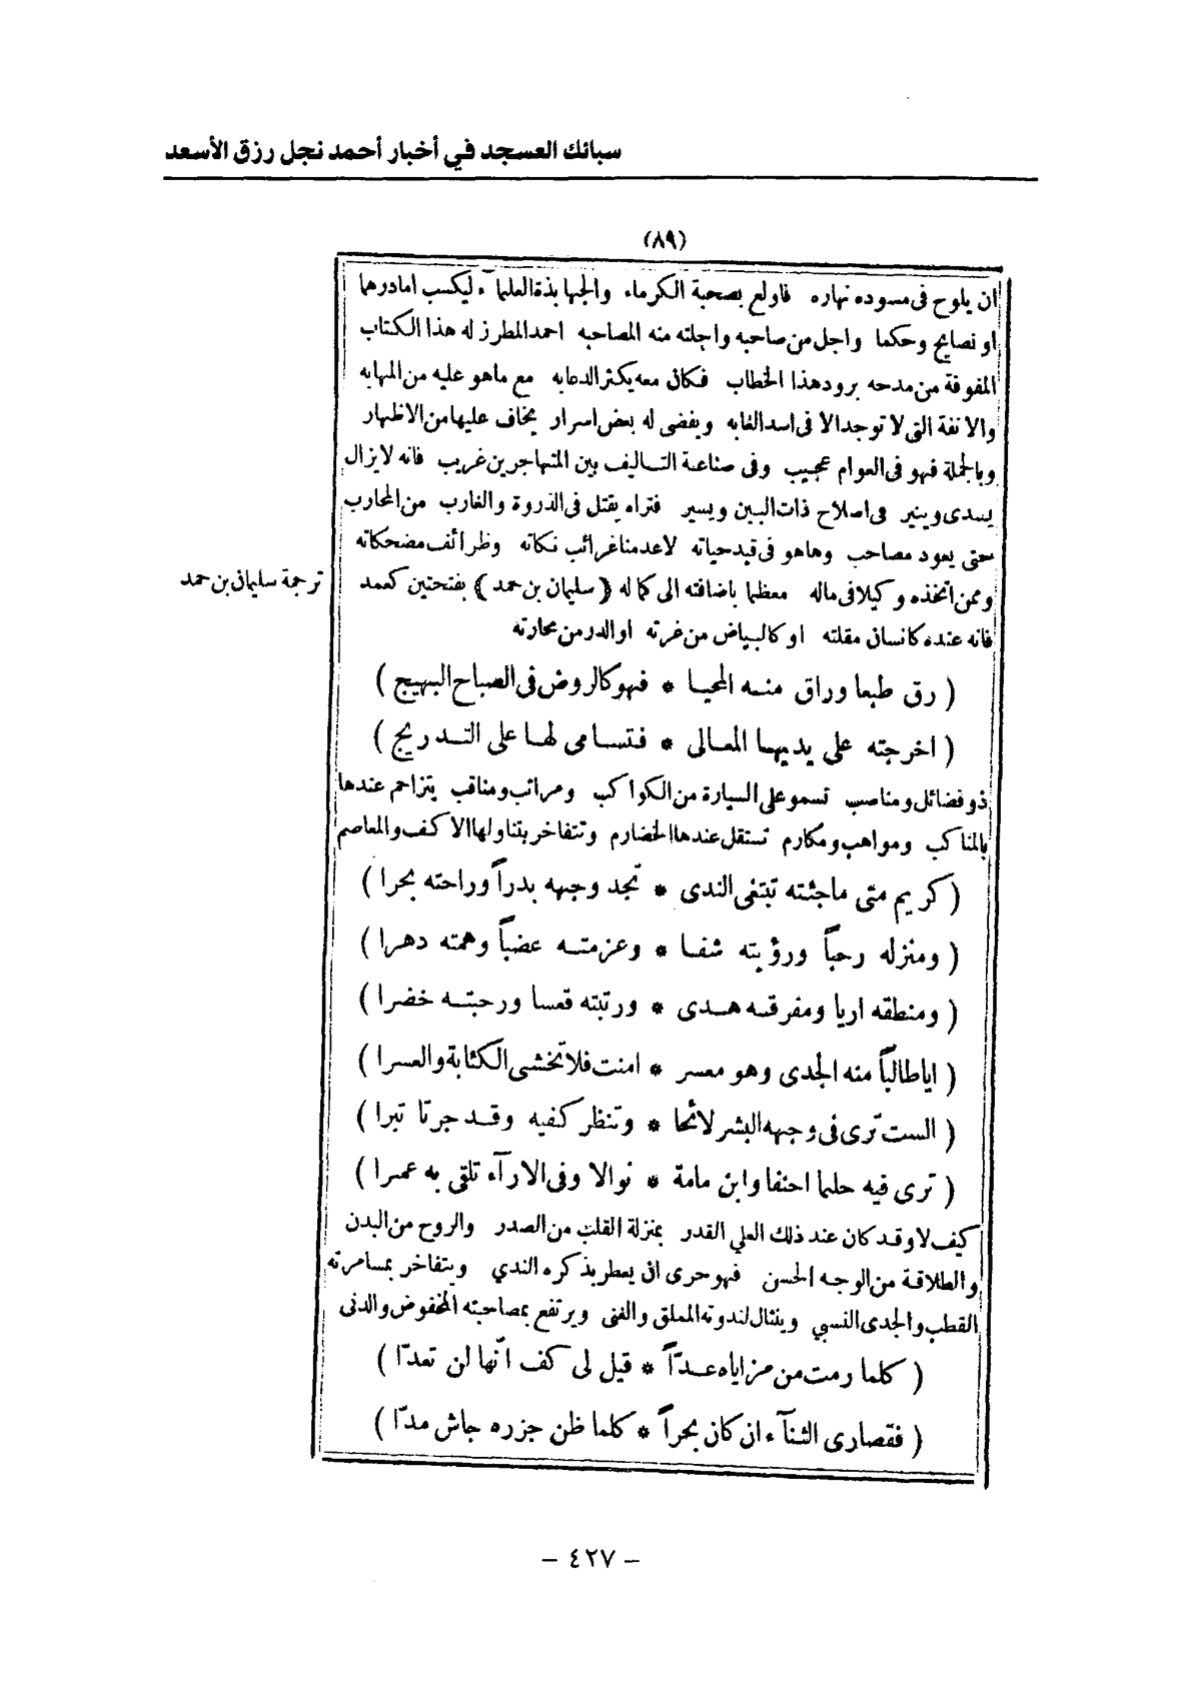 سبائك العسجد في أخبار أحمد نجل رزق الأسعد
(٨٩)
ان يلوح فى مسوده نهاره فاولع بصحبة الكرماء والجهابذة العلمآء ليكسب امادرهما
او نصايح وحكما واجل من صاحبه واجلته منه المصاحبه احمد المطرز له هذا الكتاب
المفوقة من مدحه برود هذا الخطاب فكان معه يكثر الدعابه مع ماهو عليه من المهابه
والانفة التى لا توجد الا فى اسد الغابه ويفضى له بعض اسرار يخاف عليها من الاظهار
وبالجملة فهو فى العوام عجيب وفى صناعة التاليف بين المتهاجرين غريب فانه لايزال
يسدى وينير فى اصلاح ذات البين ويسير فتراه يفتل فى الذروة والغارب من المحارب
حتى يعود مصاحب وهاهو فى قيد حياته لاعدمنا غرائب نكاته وظرائف مضحكاته
وممن اتخذه وكيلا فى ماله معظما باضافته الى كماله (سليمان بن حمد) بفتحتين كعمد
ترجمة سليمان بن حمد
فانه عنده كانسان مقلته او كالبياض من غرته او الدر من محارته
( رق طبعا وراق منه المحيا * فهو كالروض فى الصباح البهيج )
( اخرجته على يديها المعالى * فتسامى لها على التدريج )
ذو فضائل ومناصب تسمو على السيارة من الكواكب ومراتب ومناقب يتزاحم عندها
بالمناكب ومواهب ومكارم تستقل عندها الخضارم وتتفاخر بتناولها الاكف والمعاصم
( كريم متى ماجئته تبتغى الندى * تجد وجهه بدراً وراحته بحرا )
( ومنزله رحباً ورؤيته شفا * وعزمته عضباً وهمته دهرا )
( ومنطقه اريا ومفرقه هدى * ورتبته قعسا ورحبته خضرا )
( اياطالباً منه الجدى وهو معسر * امنت فلا تخشى الكئابة والعسرا )
( الست ترى فى وجهه البشر لائحا * وتنظر كفيه وقد جرتا تبرا )
( ترى فيه حلما احنفا وابن مامة * نوالا وفى الارآء تلقى به عمرا )
كيف لا وقد كان عند ذلك العلي القدر بمنزلة القلب من الصدر والروح من البدن
والطلاقة من الوجه الحسن فهو حرى ان يعطر بذكره الندي ويتفاخر بمسامرته
القطب والجدى النسبي وينثال لندوته المملق والغنى ويرتفع بمصاحبته المخفوض والدنى
( كلما رمت من مزاياه عدّاً * قيل لى كف انّها لن تعدّا )
( فقصارى الثنآء ان كان بحراً * كلما ظن جزره جاش مدّا )
- ٤٢٧ -